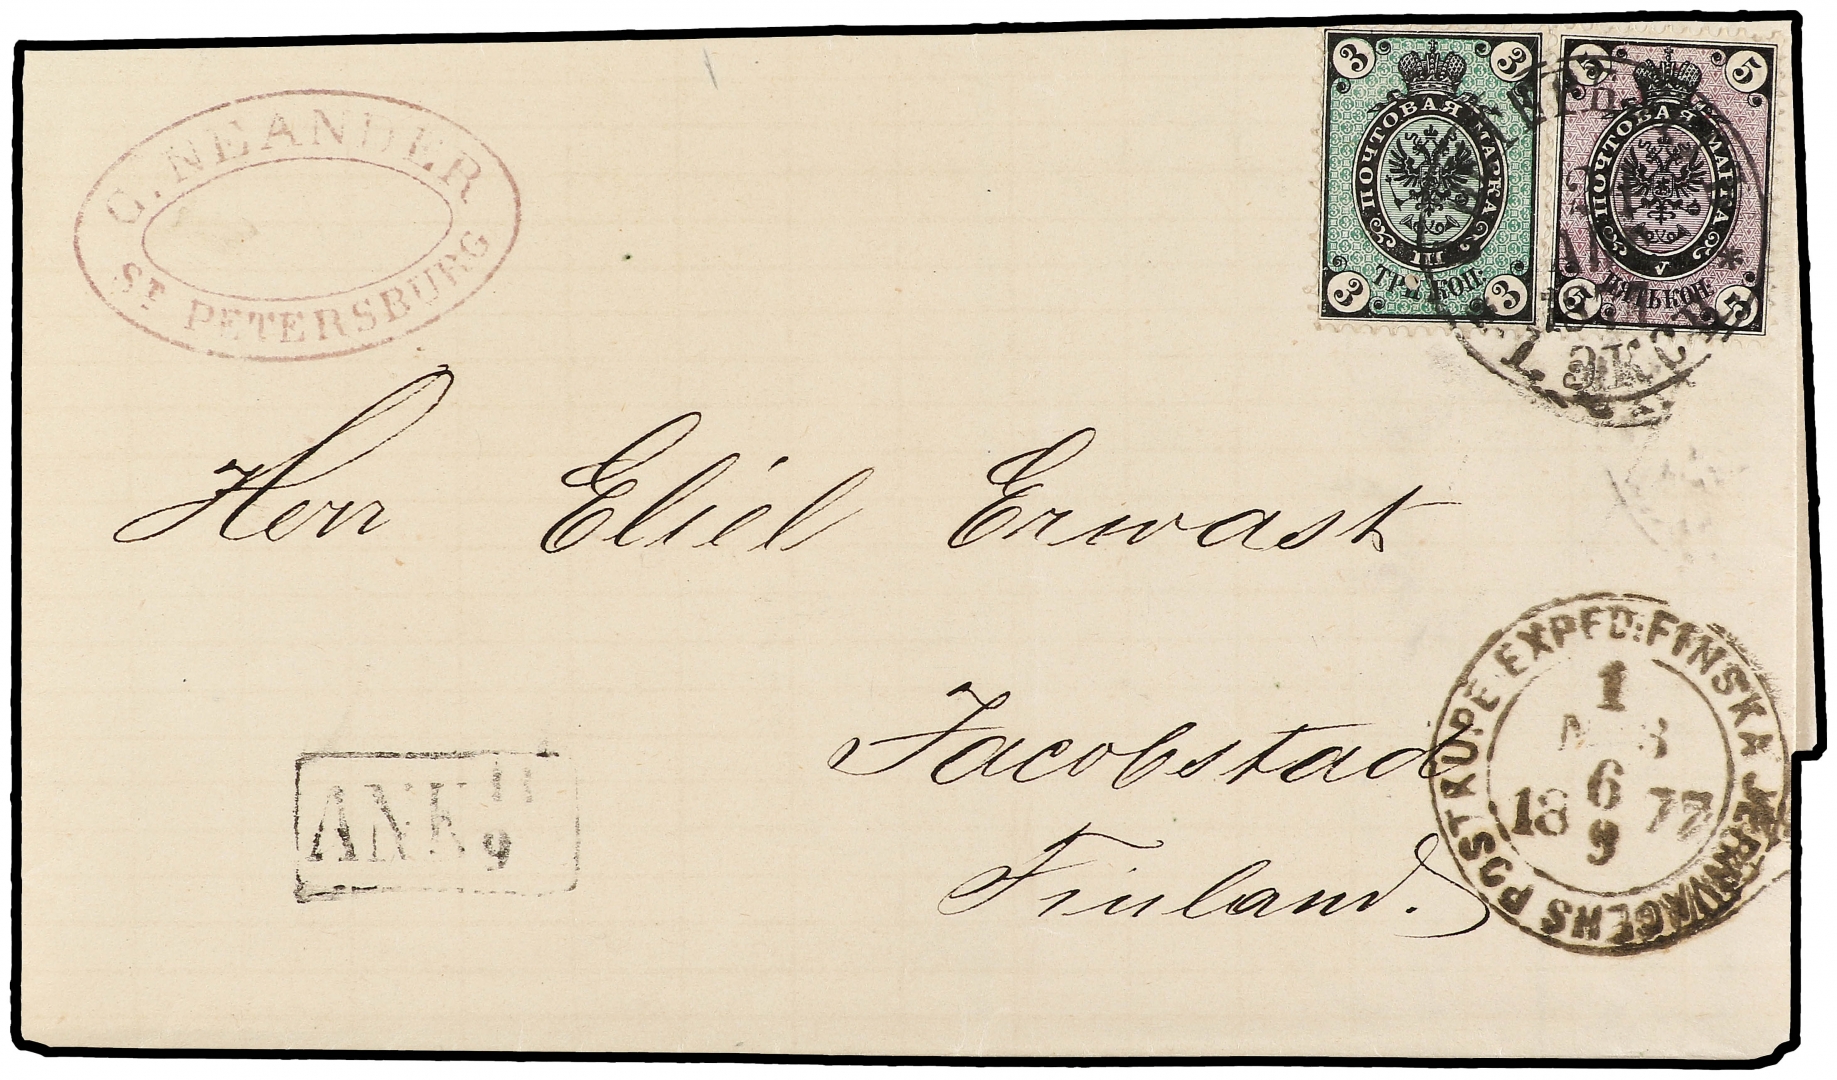 G. NEANDER
ST PETERSBURG
3 3
ПОЧТОВАЯ МАРКА
III
ТРИ КОП:
3 3
5 5
ПОЧТОВАЯ МАРКА
V
ПЯТЬ КОП:
5 5
Herr Eliél Erwast
Jacobstad
Finland.
ANK 11
9
FINSKA JERNVÄGENS POSTKUPÉ EXPED:
1
6
1877
9